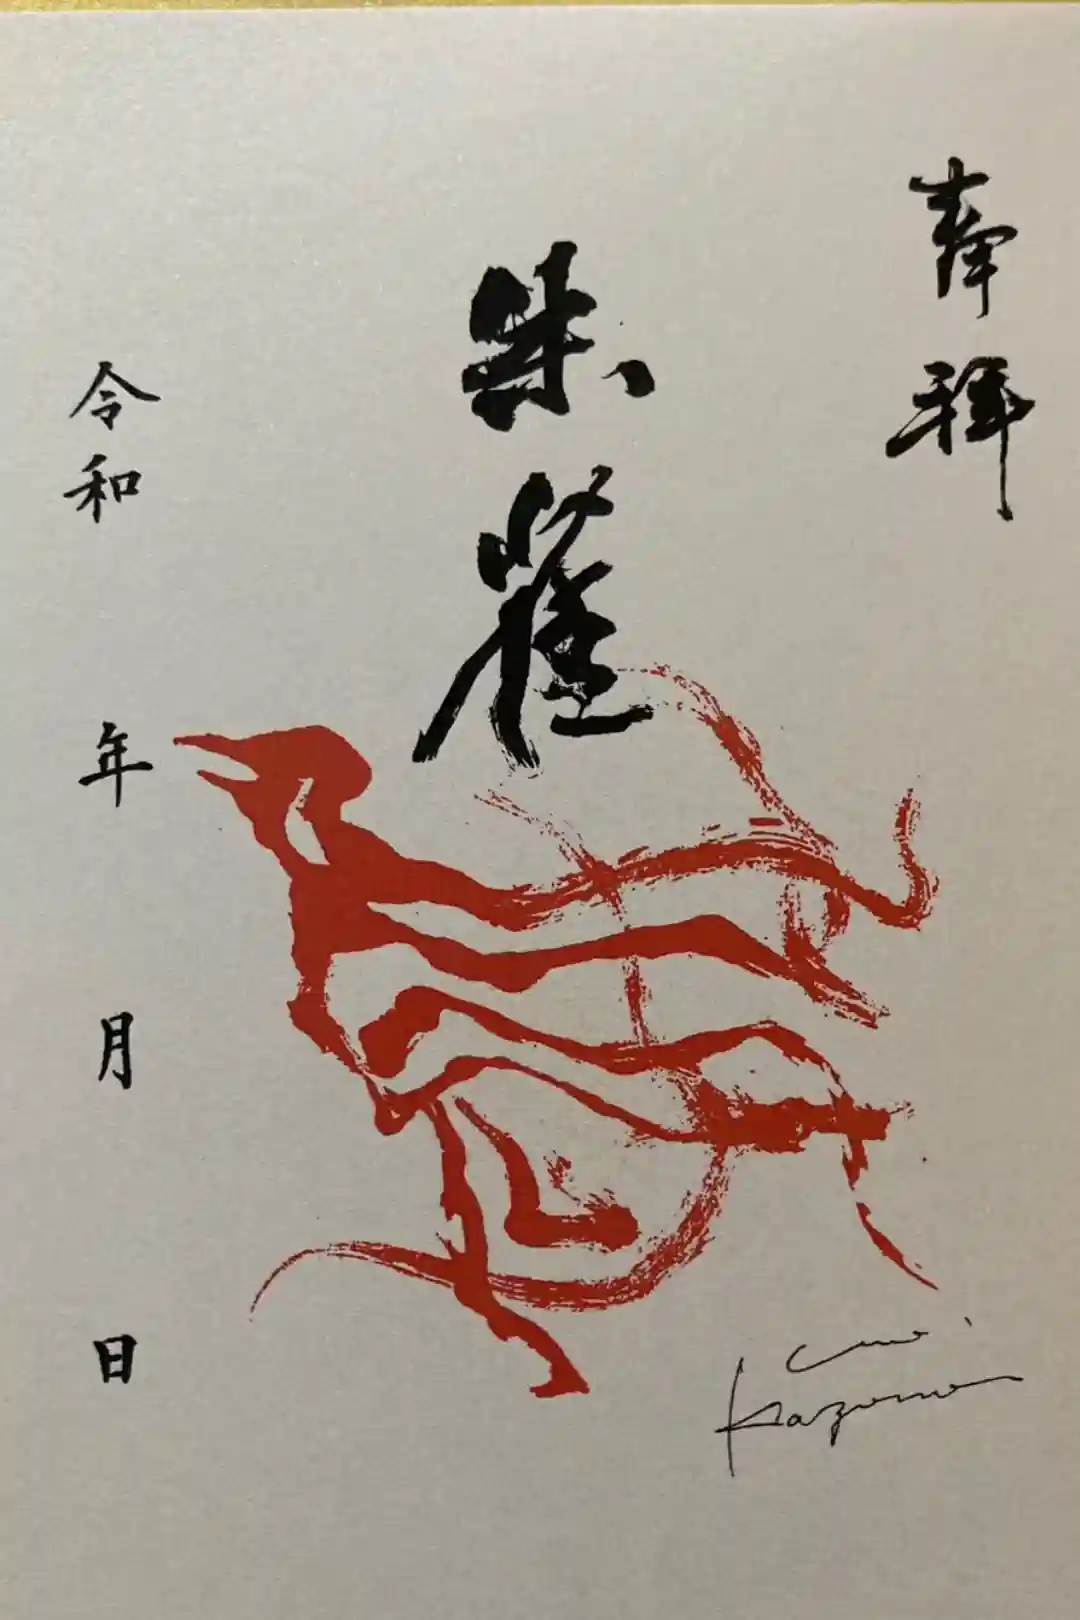 奉拝
朱雀
令和 年 月 日